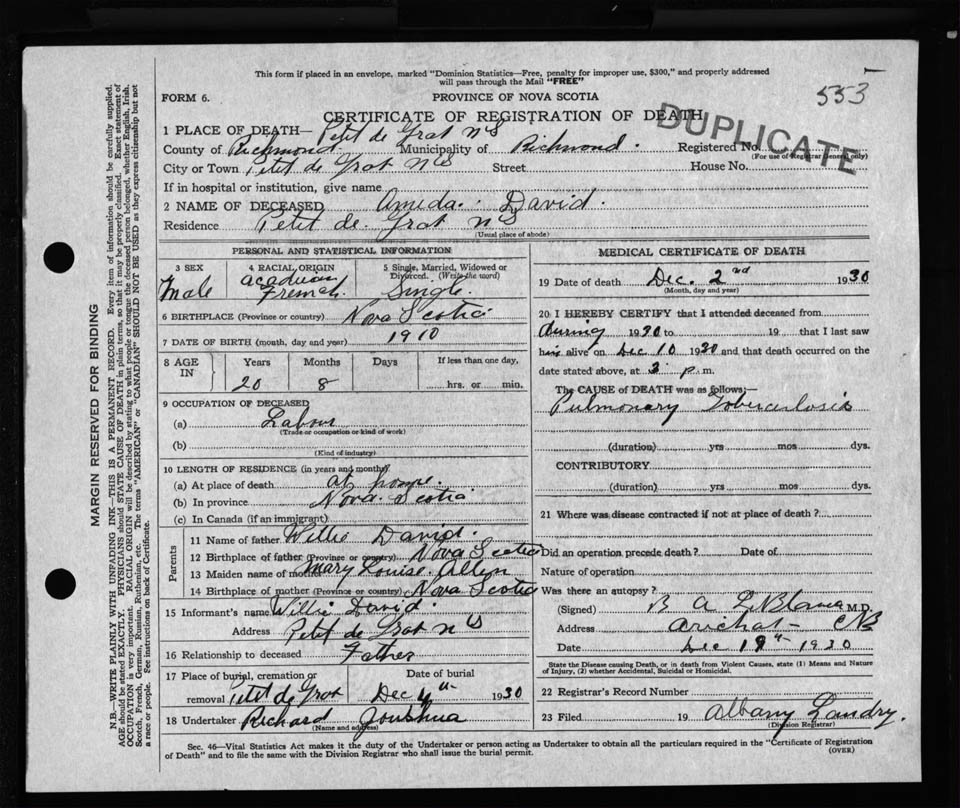 This form if placed in an envelope, marked "Dominion Statistics—Free, penalty for improper use, $300," and properly addressed
will pass through the Mail "FREE"
553
FORM 6.
PROVINCE OF NOVA SCOTIA
CERTIFICATE OF REGISTRATION OF DEATH
DUPLICATE
1 PLACE OF DEATH— Petit de Grat NS
County of Richmond. Municipality of Richmond. Registered No.
(For use of Registrar General only)
City or Town Petit de Grat NS Street House No.
If in hospital or institution, give name
2 NAME OF DECEASED Ameda. David.
Residence Petit de Grat NS
(Usual place of abode)
PERSONAL AND STATISTICAL INFORMATION
3 SEX 4 RACIAL ORIGIN 5 Single, Married, Widowed or Divorced. (Write the word)
Male Acadian French. Single.
6 BIRTHPLACE (Province or country) Nova Scotia
7 DATE OF BIRTH (month, day and year) 1910
8 AGE IN Years Months Days If less than one day,
20 8 hrs. or min.
9 OCCUPATION OF DECEASED
(a) Labour
(Trade or occupation or kind of work)
(b)
(Kind of industry)
10 LENGTH OF RESIDENCE (in years and months)
(a) At place of death at home.
(b) In province Nova Scotia
(c) In Canada (if an immigrant)
Parents
11 Name of father Willie David.
12 Birthplace of father (Province or country) Nova Scotia
13 Maiden name of mother Mary Louise.
14 Birthplace of mother (Province or country) Nova Scotia
15 Informant's name Willie David.
Address Petit de Grat NS
16 Relationship to deceased Father
17 Place of burial, cremation or removal Petit de Grat Date of burial Dec 4th 1930
18 Undertaker Richard Joushua
(Name and address)
MEDICAL CERTIFICATE OF DEATH
19 Date of death Dec. 2nd 1930
(Month, day and year)
20 I HEREBY CERTIFY that I attended deceased from
during 1930 to 19 that I last saw
him alive on Dec 10 1930 and that death occurred on the
date stated above, at 3 p.m.
The CAUSE of DEATH was as follows:—
Pulmonary Toberculosis
(duration) yrs mos dys.
CONTRIBUTORY
(duration) yrs mos dys.
21 Where was disease contracted if not at place of death?
Did an operation precede death? Date of
Nature of operation
Was there an autopsy?
(Signed) B A LeBlanc M.D.
Address Arichat CB
Date Dec 19th 1930
State the Disease causing Death, or in death from Violent Causes, state (1) Means and Nature of Injury, (2) whether Accidental, Suicidal or Homicidal.
22 Registrar's Record Number
23 Filed 19 Albany Landry.
(Division Registrar)
Sec. 46—Vital Statistics Act makes it the duty of the Undertaker or person acting as Undertaker to obtain all the particulars required in the "Certificate of Registration
of Death" and to file the same with the Division Registrar who shall issue the burial permit.
(OVER)
MARGIN RESERVED FOR BINDING
N.B.—WRITE PLAINLY WITH UNFADING INK—THIS IS A PERMANENT RECORD. Every item of information should be carefully supplied.
AGE should be stated EXACTLY. PHYSICIANS should STATE CAUSE OF DEATH in plain terms, so that it may be properly classified. Exact statement of
OCCUPATION is very important. RACIAL ORIGIN will be described by stating to what people or tongue the deceased person belonged, whether English, Irish,
Scotch, French, German, Russian, Ruthenian, etc. The terms "AMERICAN" or "CANADIAN" SHOULD NOT BE USED as they express citizenship but not
a race or people. See instructions on back of Certificate.